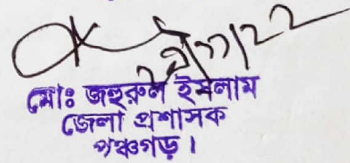 ২৭/১১/২২
মোঃ জহুরুল ইসলাম
জেলা প্রশাসক
পঞ্চগড়।